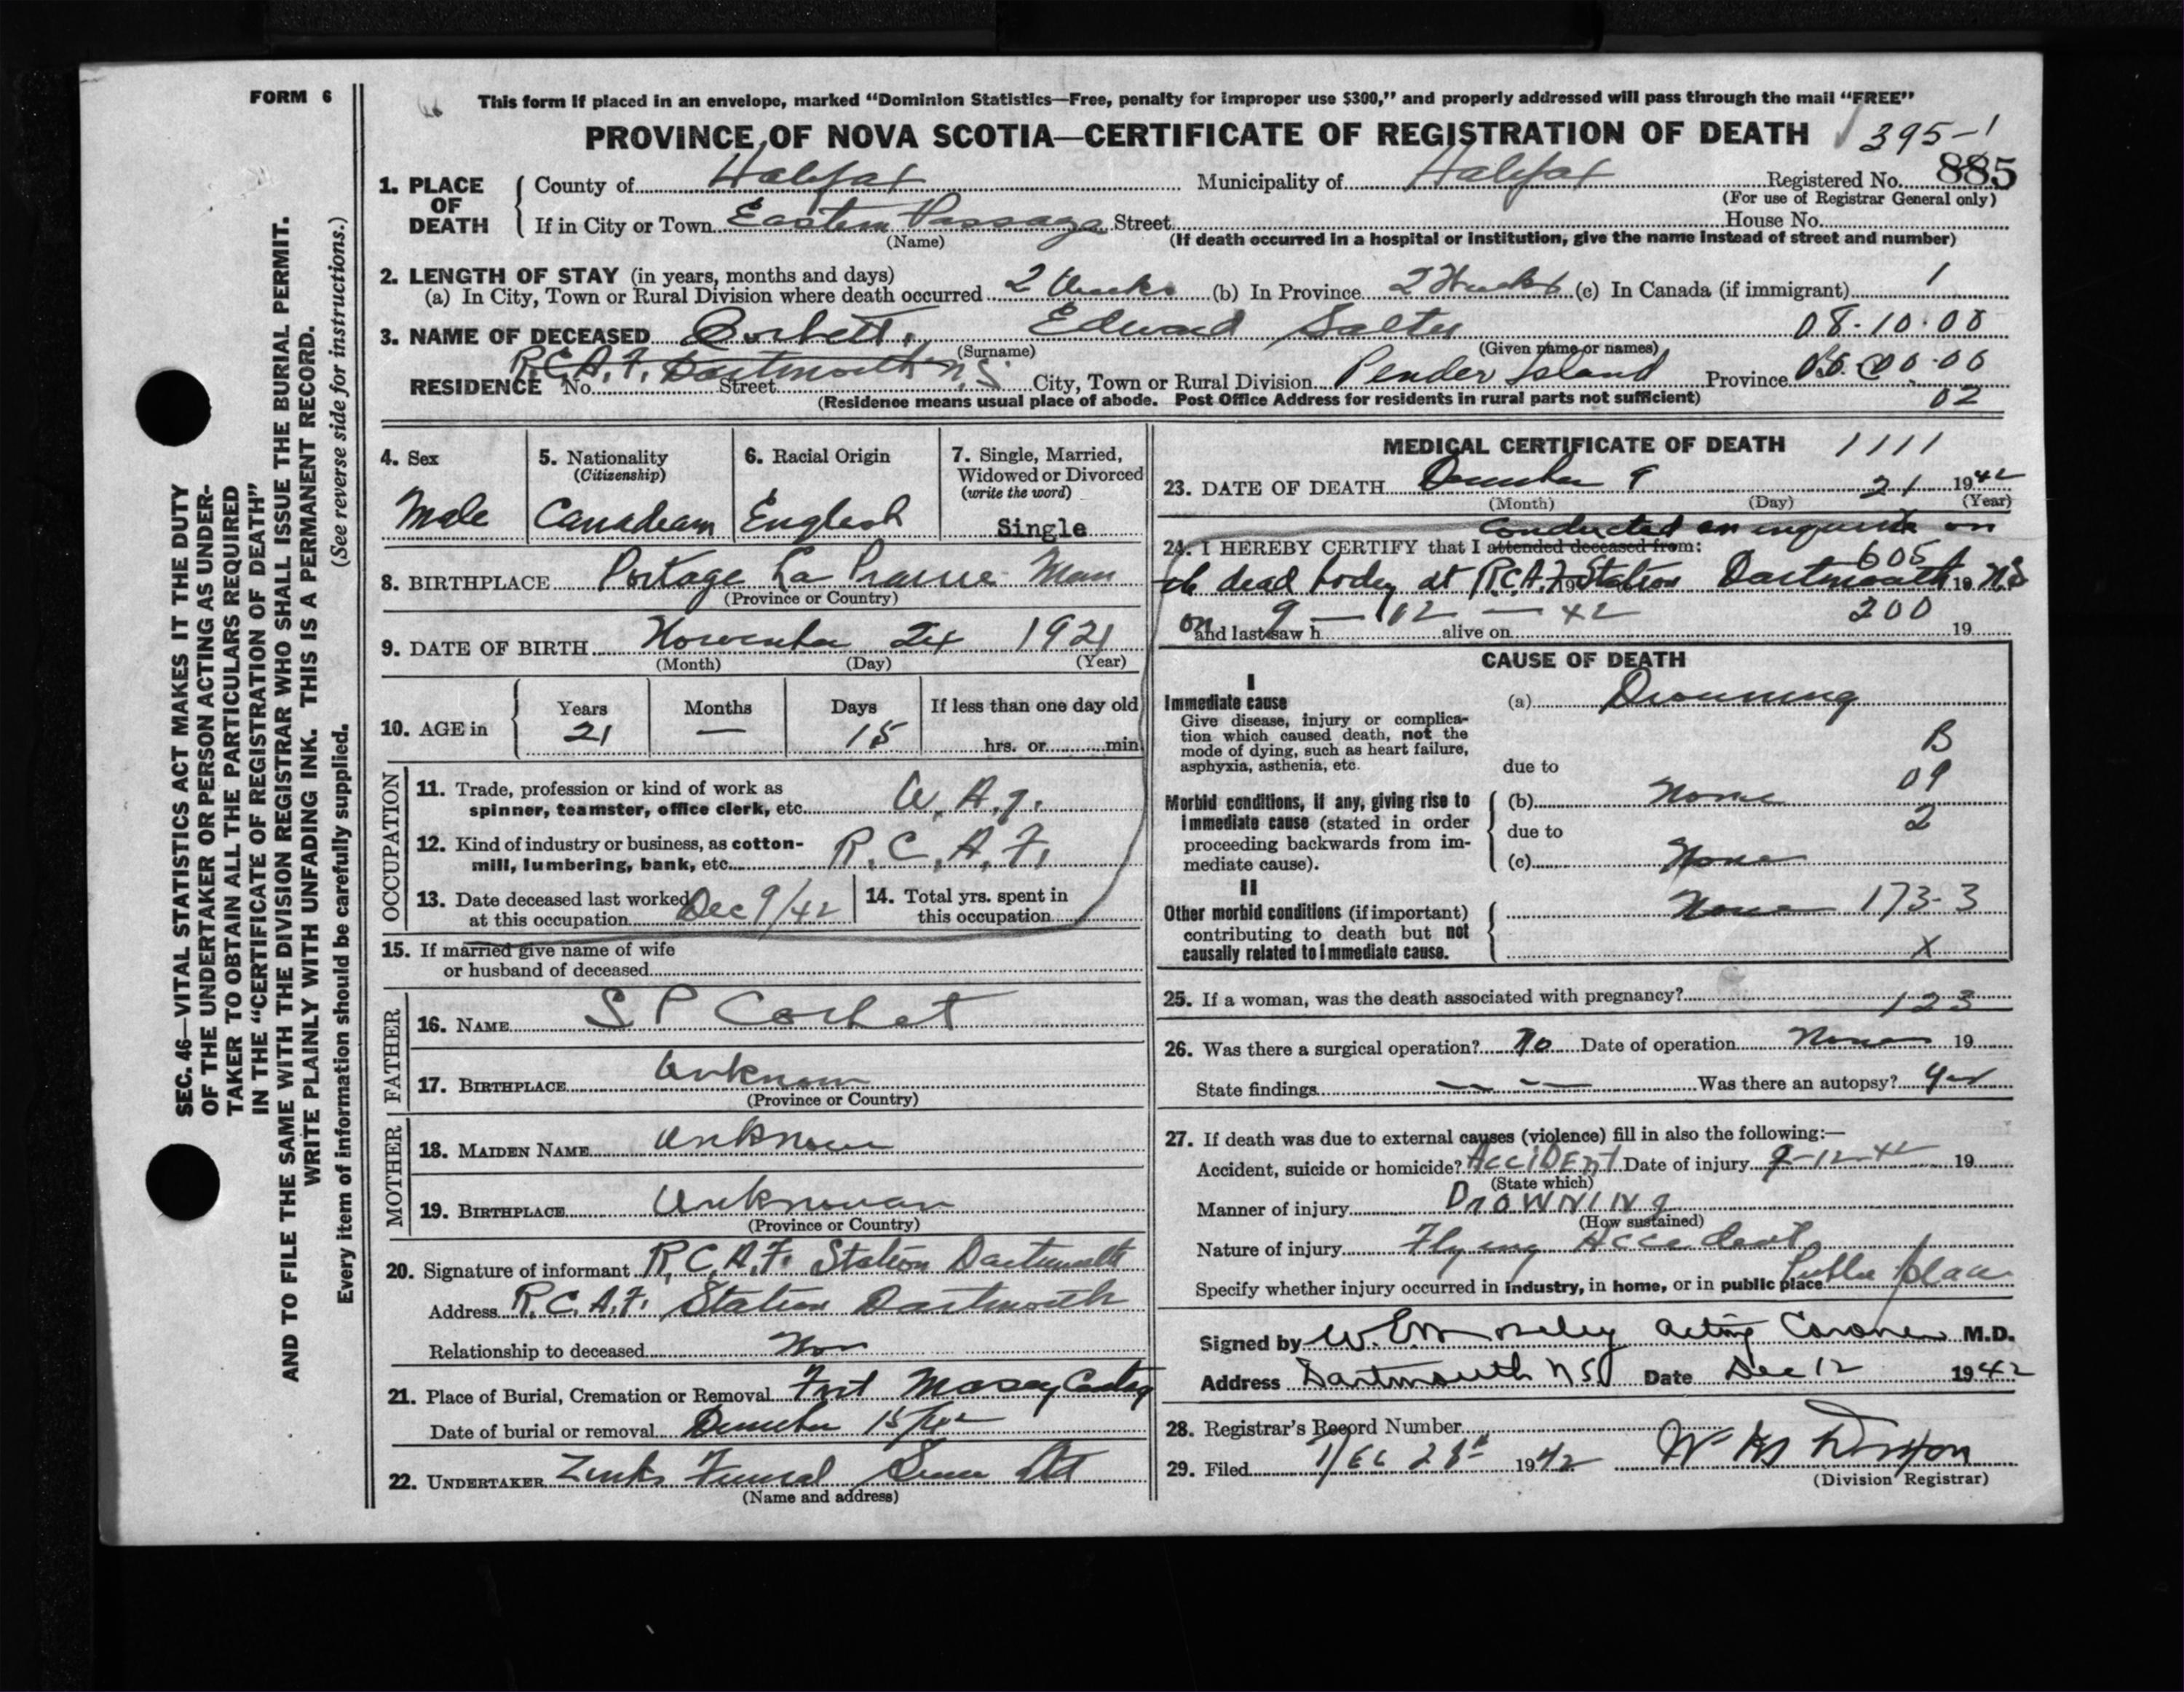 FORM 6
This form if placed in an envelope, marked “Dominion Statistics—Free, penalty for improper use $300,” and properly addressed will pass through the mail “FREE”
PROVINCE OF NOVA SCOTIA—CERTIFICATE OF REGISTRATION OF DEATH
395-1
885
1. PLACE OF DEATH
County of Halifax Municipality of Halifax Registered No.
(For use of Registrar General only)
If in City or Town Eastern Passage Street House No.
(Name) (If death occurred in a hospital or institution, give the name instead of street and number)
2. LENGTH OF STAY (in years, months and days)
(a) In City, Town or Rural Division where death occurred 2 Weeks (b) In Province 2 Weeks (c) In Canada (if immigrant) 1
3. NAME OF DECEASED Corbett, Edward Salter 08-10-00
(Surname) (Given name or names)
R.C.A.F. Dartmouth N.S.
RESIDENCE No. Street City, Town or Rural Division Pender Island Province B.C. 00-00
(Residence means usual place of abode. Post Office Address for residents in rural parts not sufficient) 02
4. Sex Male
5. Nationality (Citizenship) Canadian
6. Racial Origin English
7. Single, Married, Widowed or Divorced (write the word) Single
8. BIRTHPLACE Portage La Prairie Man
(Province or Country)
9. DATE OF BIRTH November 24 1921
(Month) (Day) (Year)
10. AGE in Years 21 Months — Days 15 If less than one day old hrs. or min.
OCCUPATION
11. Trade, profession or kind of work as spinner, teamster, office clerk, etc. W.A.g.
12. Kind of industry or business, as cotton-mill, lumbering, bank, etc. R.C.A.F.
13. Date deceased last worked at this occupation Dec 9/42
14. Total yrs. spent in this occupation
15. If married give name of wife or husband of deceased
FATHER
16. NAME S P Corbet
17. BIRTHPLACE Unknown
(Province or Country)
MOTHER
18. MAIDEN NAME Unknown
19. BIRTHPLACE Unknown
(Province or Country)
20. Signature of informant R.C.A.F. Station Dartmouth
Address R.C.A.F. Station Dartmouth
Relationship to deceased Non
21. Place of Burial, Cremation or Removal Fort Massey
Date of burial or removal December 15/42
22. UNDERTAKER Zinks Funeral
(Name and address)
MEDICAL CERTIFICATE OF DEATH 1111
23. DATE OF DEATH December 9 21 1942
(Month) (Day) (Year)
Conducted an inquest on
24. I HEREBY CERTIFY that I attended deceased from:
605
dead body at R.C.A.F. Station Dartmouth 19 N.S
on 9 — 12 — 42 200
and last saw h alive on 19
CAUSE OF DEATH
I
Immediate cause
Give disease, injury or complication which caused death, not the mode of dying, such as heart failure, asphyxia, asthenia, etc.
(a) Drowning
B
due to
09
Morbid conditions, if any, giving rise to immediate cause (stated in order proceeding backwards from immediate cause).
(b) None
2
due to
(c) None
II
Other morbid conditions (if important) contributing to death but not causally related to immediate cause.
None 173-3
X
25. If a woman, was the death associated with pregnancy? 123
26. Was there a surgical operation? No Date of operation None 19
State findings — — Was there an autopsy? Yes
27. If death was due to external causes (violence) fill in also the following:—
Accident, suicide or homicide? Accident Date of injury 9-12-42 19
(State which)
Manner of injury Drowning
(How sustained)
Nature of injury Flying Accident
Specify whether injury occurred in industry, in home, or in public place Public place
Signed by Acting Coroner M.D.
Address Dartmouth NS Date Dec 12 1942
28. Registrar's Record Number
29. Filed Dec 28 1942
(Division Registrar)
SEC. 46—VITAL STATISTICS ACT MAKES IT THE DUTY
OF THE UNDERTAKER OR PERSON ACTING AS UNDER-
TAKER TO OBTAIN ALL THE PARTICULARS REQUIRED
IN THE “CERTIFICATE OF REGISTRATION OF DEATH”
AND TO FILE THE SAME WITH THE DIVISION REGISTRAR WHO SHALL ISSUE THE BURIAL PERMIT.
WRITE PLAINLY WITH UNFADING INK. THIS IS A PERMANENT RECORD.
Every item of information should be carefully supplied. (See reverse side for instructions.)